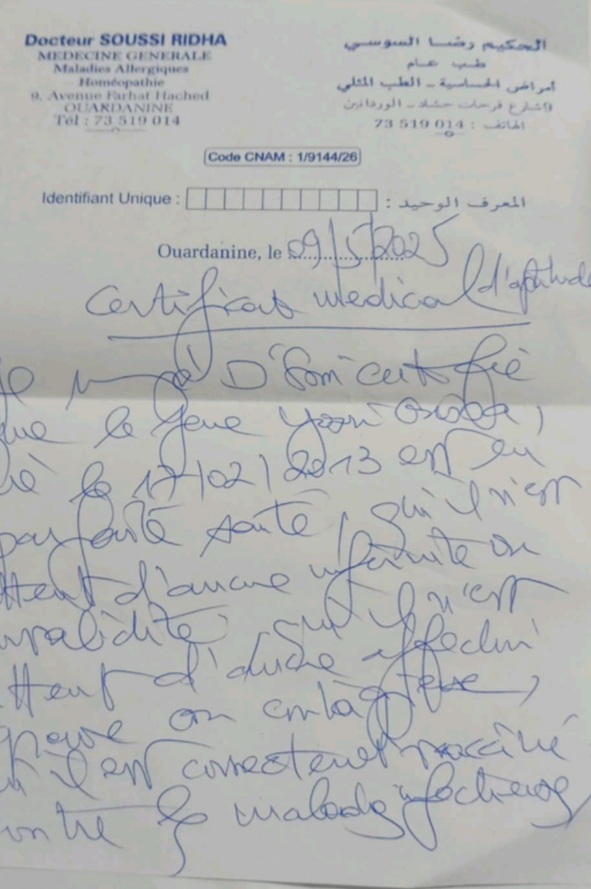 Docteur SOUSSI RIDHA
MEDECINE GENERALE
Maladies Allergiques
Homéopathie
9, Avenue Farhat Hached
OUARDANINE
Tél : 73 519 014
الحكيم رضا السوسي
طب عام
أمراض الحساسية - الطب المثلي
9 شارع فرحات حشاد - الوردانين
الهاتف : 014 519 73
Code CNAM : 1/9144/26
Identifiant Unique : المعرف الوحيد :
Ouardanine, le 09/5/2025
Certificat médical d'aptitude
certifie
que le jeune
né le 17/02/2013 est en
parfaite santé, qu'il n'est
atteint d'aucune infirmité ou
invalidité, qu'il n'est
atteint d'aucune affection
grave ou contagieuse,
et il est correctement vacciné
contre les maladies infectieuses